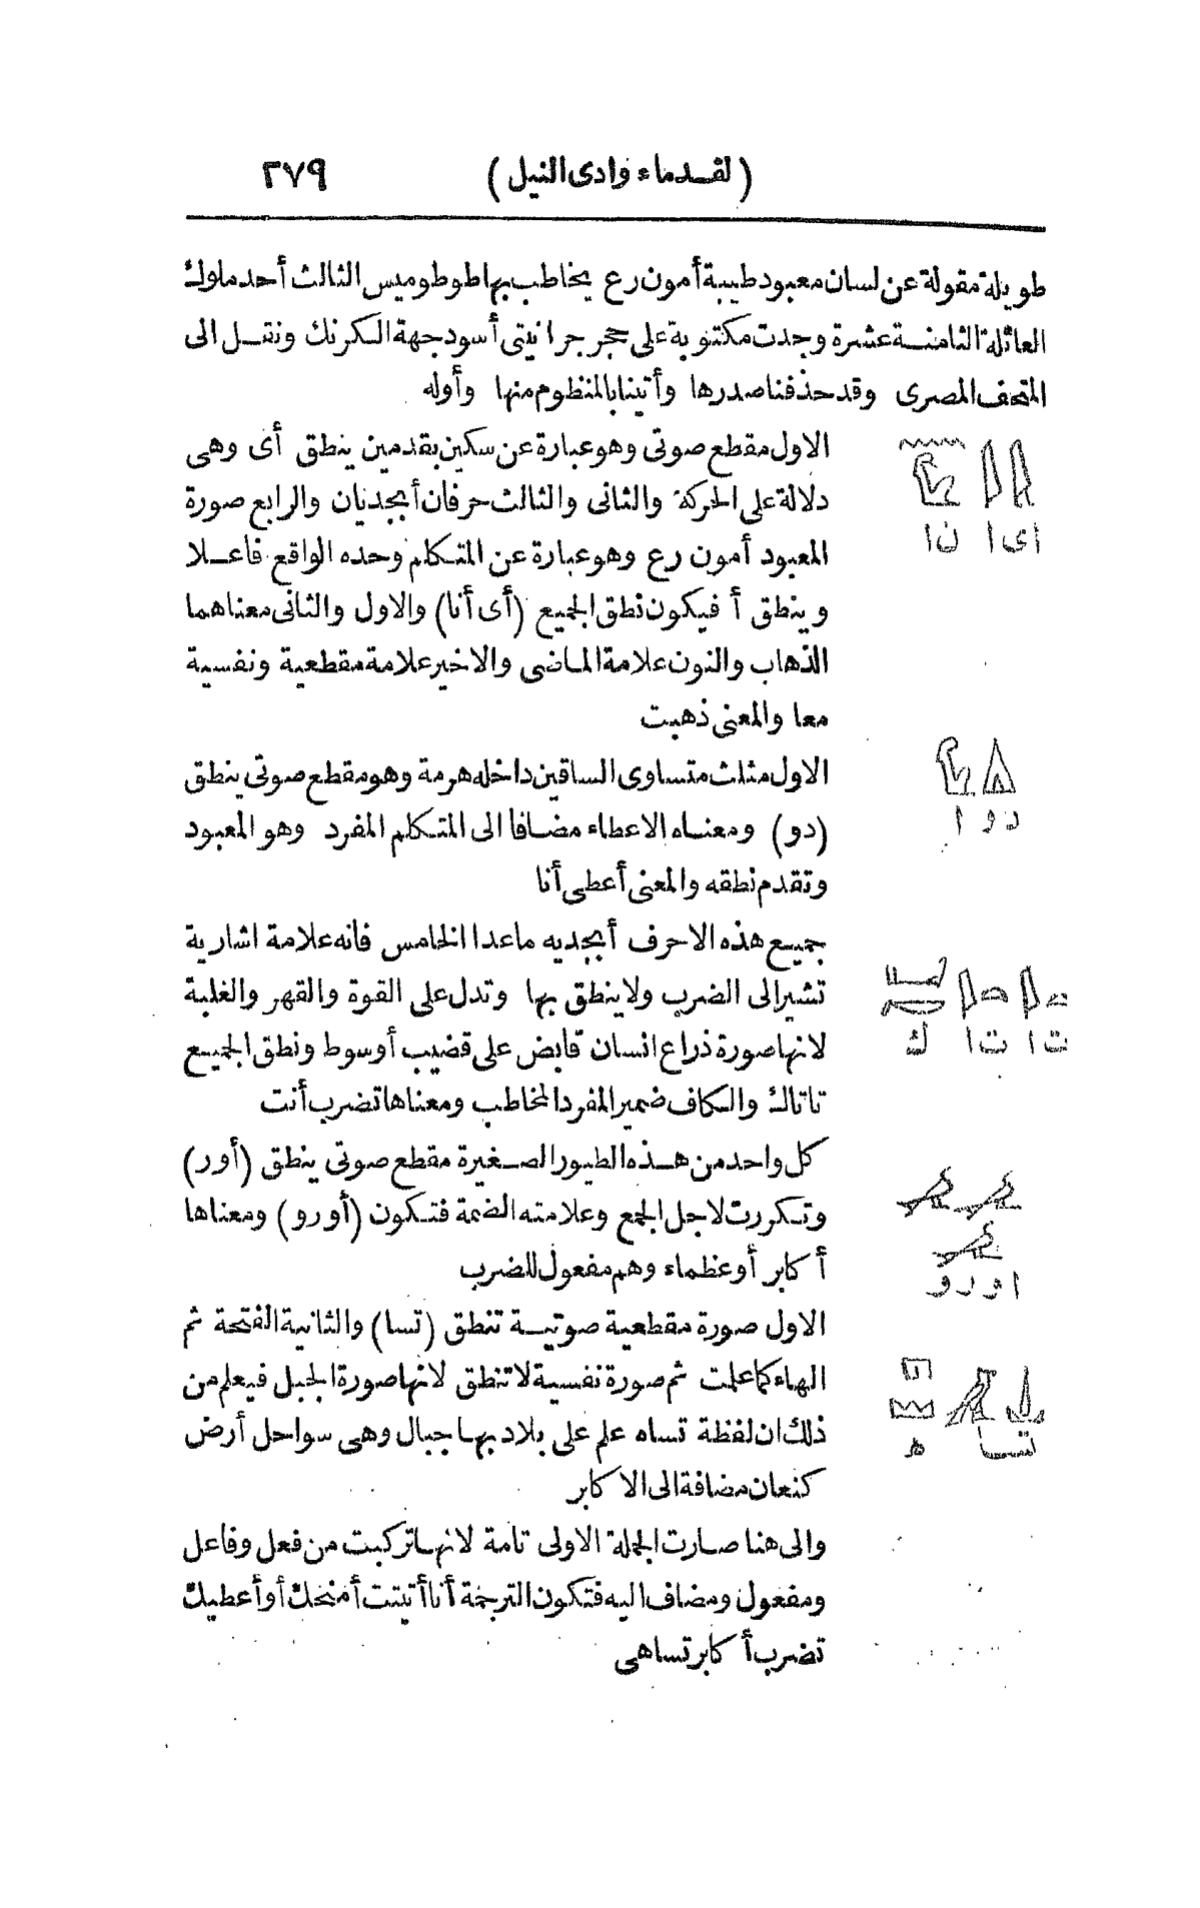 (لقدماء وادى النيل) ٢٧٩
طويلة مقولة عن لسان معبود طيبة أمون رع يخاطب بها طوطوميس الثالث أحد ملوك
العائلة الثامنة عشرة وجدت مكتوبة على حجر جرانيتى أسود جهة الكرنك ونقل الى
المتحف المصرى وقد حذفنا صدرها وأتينا بالمنظوم منها وأوله
الاول مقطع صوتى وهو عبارة عن سكين بقدمين ينطق أى وهى
دلالة على الحركة والثانى والثالث حرفان أبجديان والرابع صورة
اى ا ن ا
المعبود أمون رع وهو عبارة عن المتكلم وحده الواقع فاعلا
وينطق أ فيكون نطق الجميع (أى أنا) والاول والثانى معناهما
الذهاب والنون علامة الماضى والاخير علامة مقطعية ونفسية
معا والمعنى ذهبت
الاول مثلث متساوى الساقين داخله هرمة وهو مقطع صوتى ينطق
دو ا
(دو) ومعناه الاعطاء مضافا الى المتكلم المفرد وهو المعبود
وتقدم نطقه والمعنى أعطى أنا
جميع هذه الاحرف أبجديه ماعدا الخامس فانه علامة اشارية
تشير الى الضرب ولا ينطق بها وتدل على القوة والقهر والغلبة
ت ا ت ا ك
لانها صورة ذراع انسان قابض على قضيب أوسوط ونطق الجميع
تاتاك والكاف ضمير المفرد المخاطب ومعناها تضرب أنت
كل واحد من هذه الطيور الصغيرة مقطع صوتى ينطق (أور)
وتكررت لاجل الجمع وعلامته الضمة فتكون (أورو) ومعناها
أكابر أوعظماء وهم مفعول للضرب
اورو
الاول صورة مقطعية صوتية تنطق (تسا) والثانية الفتحة ثم
الهاء كما علمت ثم صورة نفسية لا تنطق لانها صورة الجبل فيعلم من
ذلك ان لفظة تساه علم على بلاد بها جبال وهى سواحل أرض
تسا ه
كنعان مضافة الى الاكابر
والى هنا صارت الجملة الاولى تامة لانها تركبت من فعل وفاعل
ومفعول ومضاف اليه فتكون الترجمة أنا أتيتت أمنحك أو أعطيك
تضرب أكابر تساهى